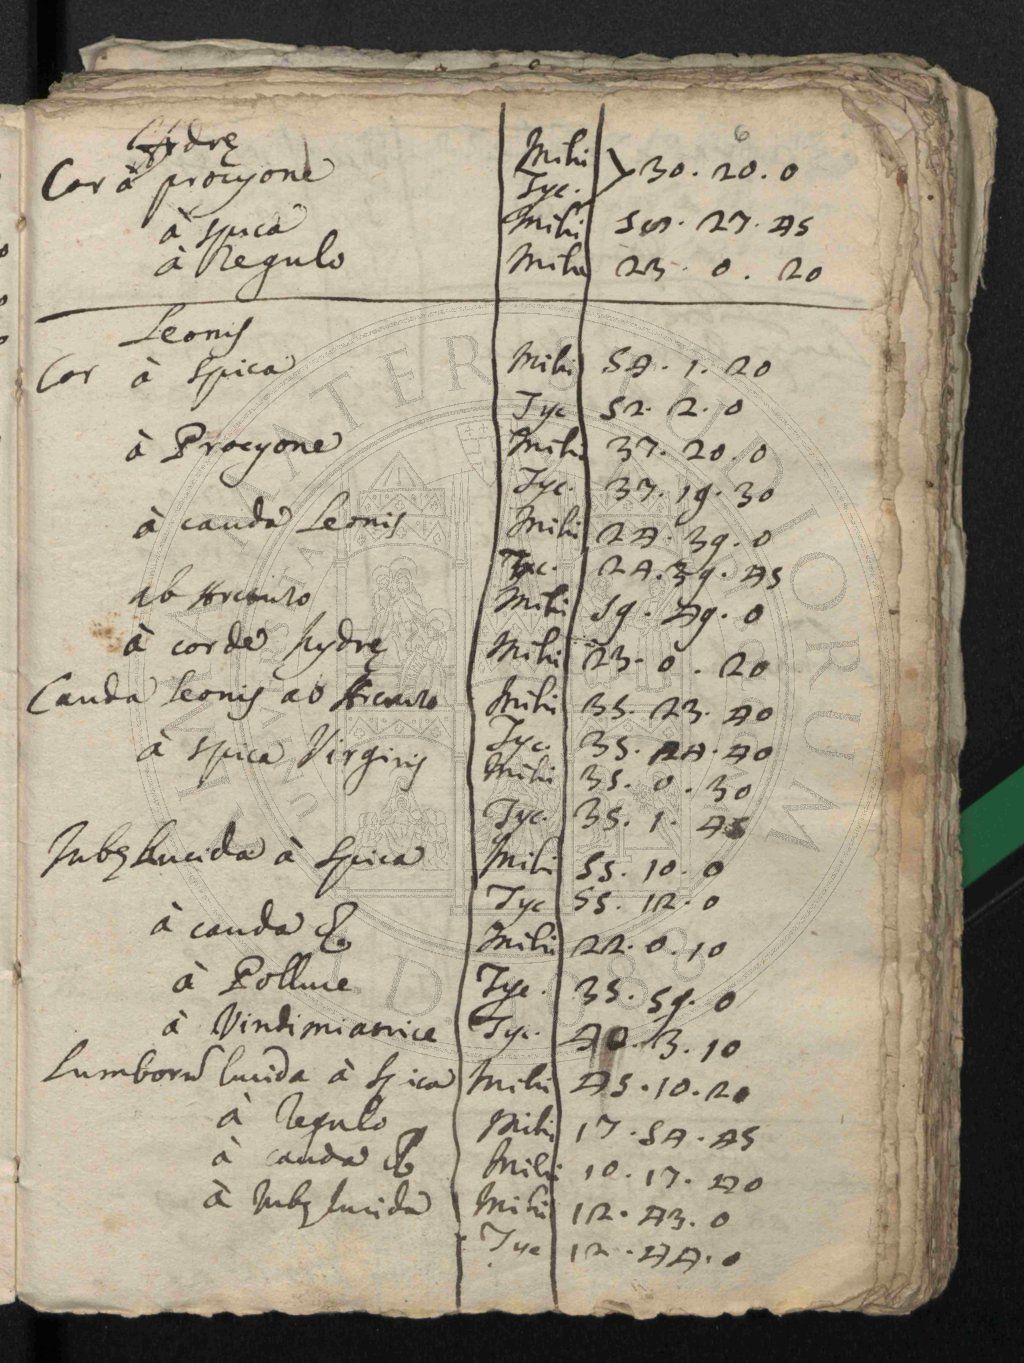 6
Hydrę
Cor à procyone Mihi
Tyc. } 30. 20. 0
à spica Mihi 58. 27. 45
à Regulo Mihi 23. 0. 20
Leonis
Cor à Spica Mihi 54. 1. 20
Tyc 52. 2. 0
à Procyone Mihi 37. 20. 0
Tyc. 37. 19. 30
à cauda Leonis Mihi 24. 39. 0
Tyc. 24. 39. 45
ab Arcturo Mihi 59. 49. 0
à corde hydrę Mihi 23. 0. 20
Cauda leonis ab Arcturo Mihi 35. 23. 40
Tyc. 35. 24. 40
à spica Virginis Mihi 35. 0. 30
Tyc. 35. 1. 45
Jubę lucida à Spica Mihi 55. 10. 0
Tyc 55. 12. 0
à cauda ♌ Mihi 22. 0. 10
à Polluce Tyc. 35. 59. 0
à Vindimiatrice Tyc. 40. 3. 10
Lumborū lucida à Spica Mihi 45. 10. 20
à Regulo Mihi 17. 54. 45
à cauda ♌ Mihi 10. 17. 40
à Jubę lucida Mihi 12. 43. 0
Tyc 12. 44. 0